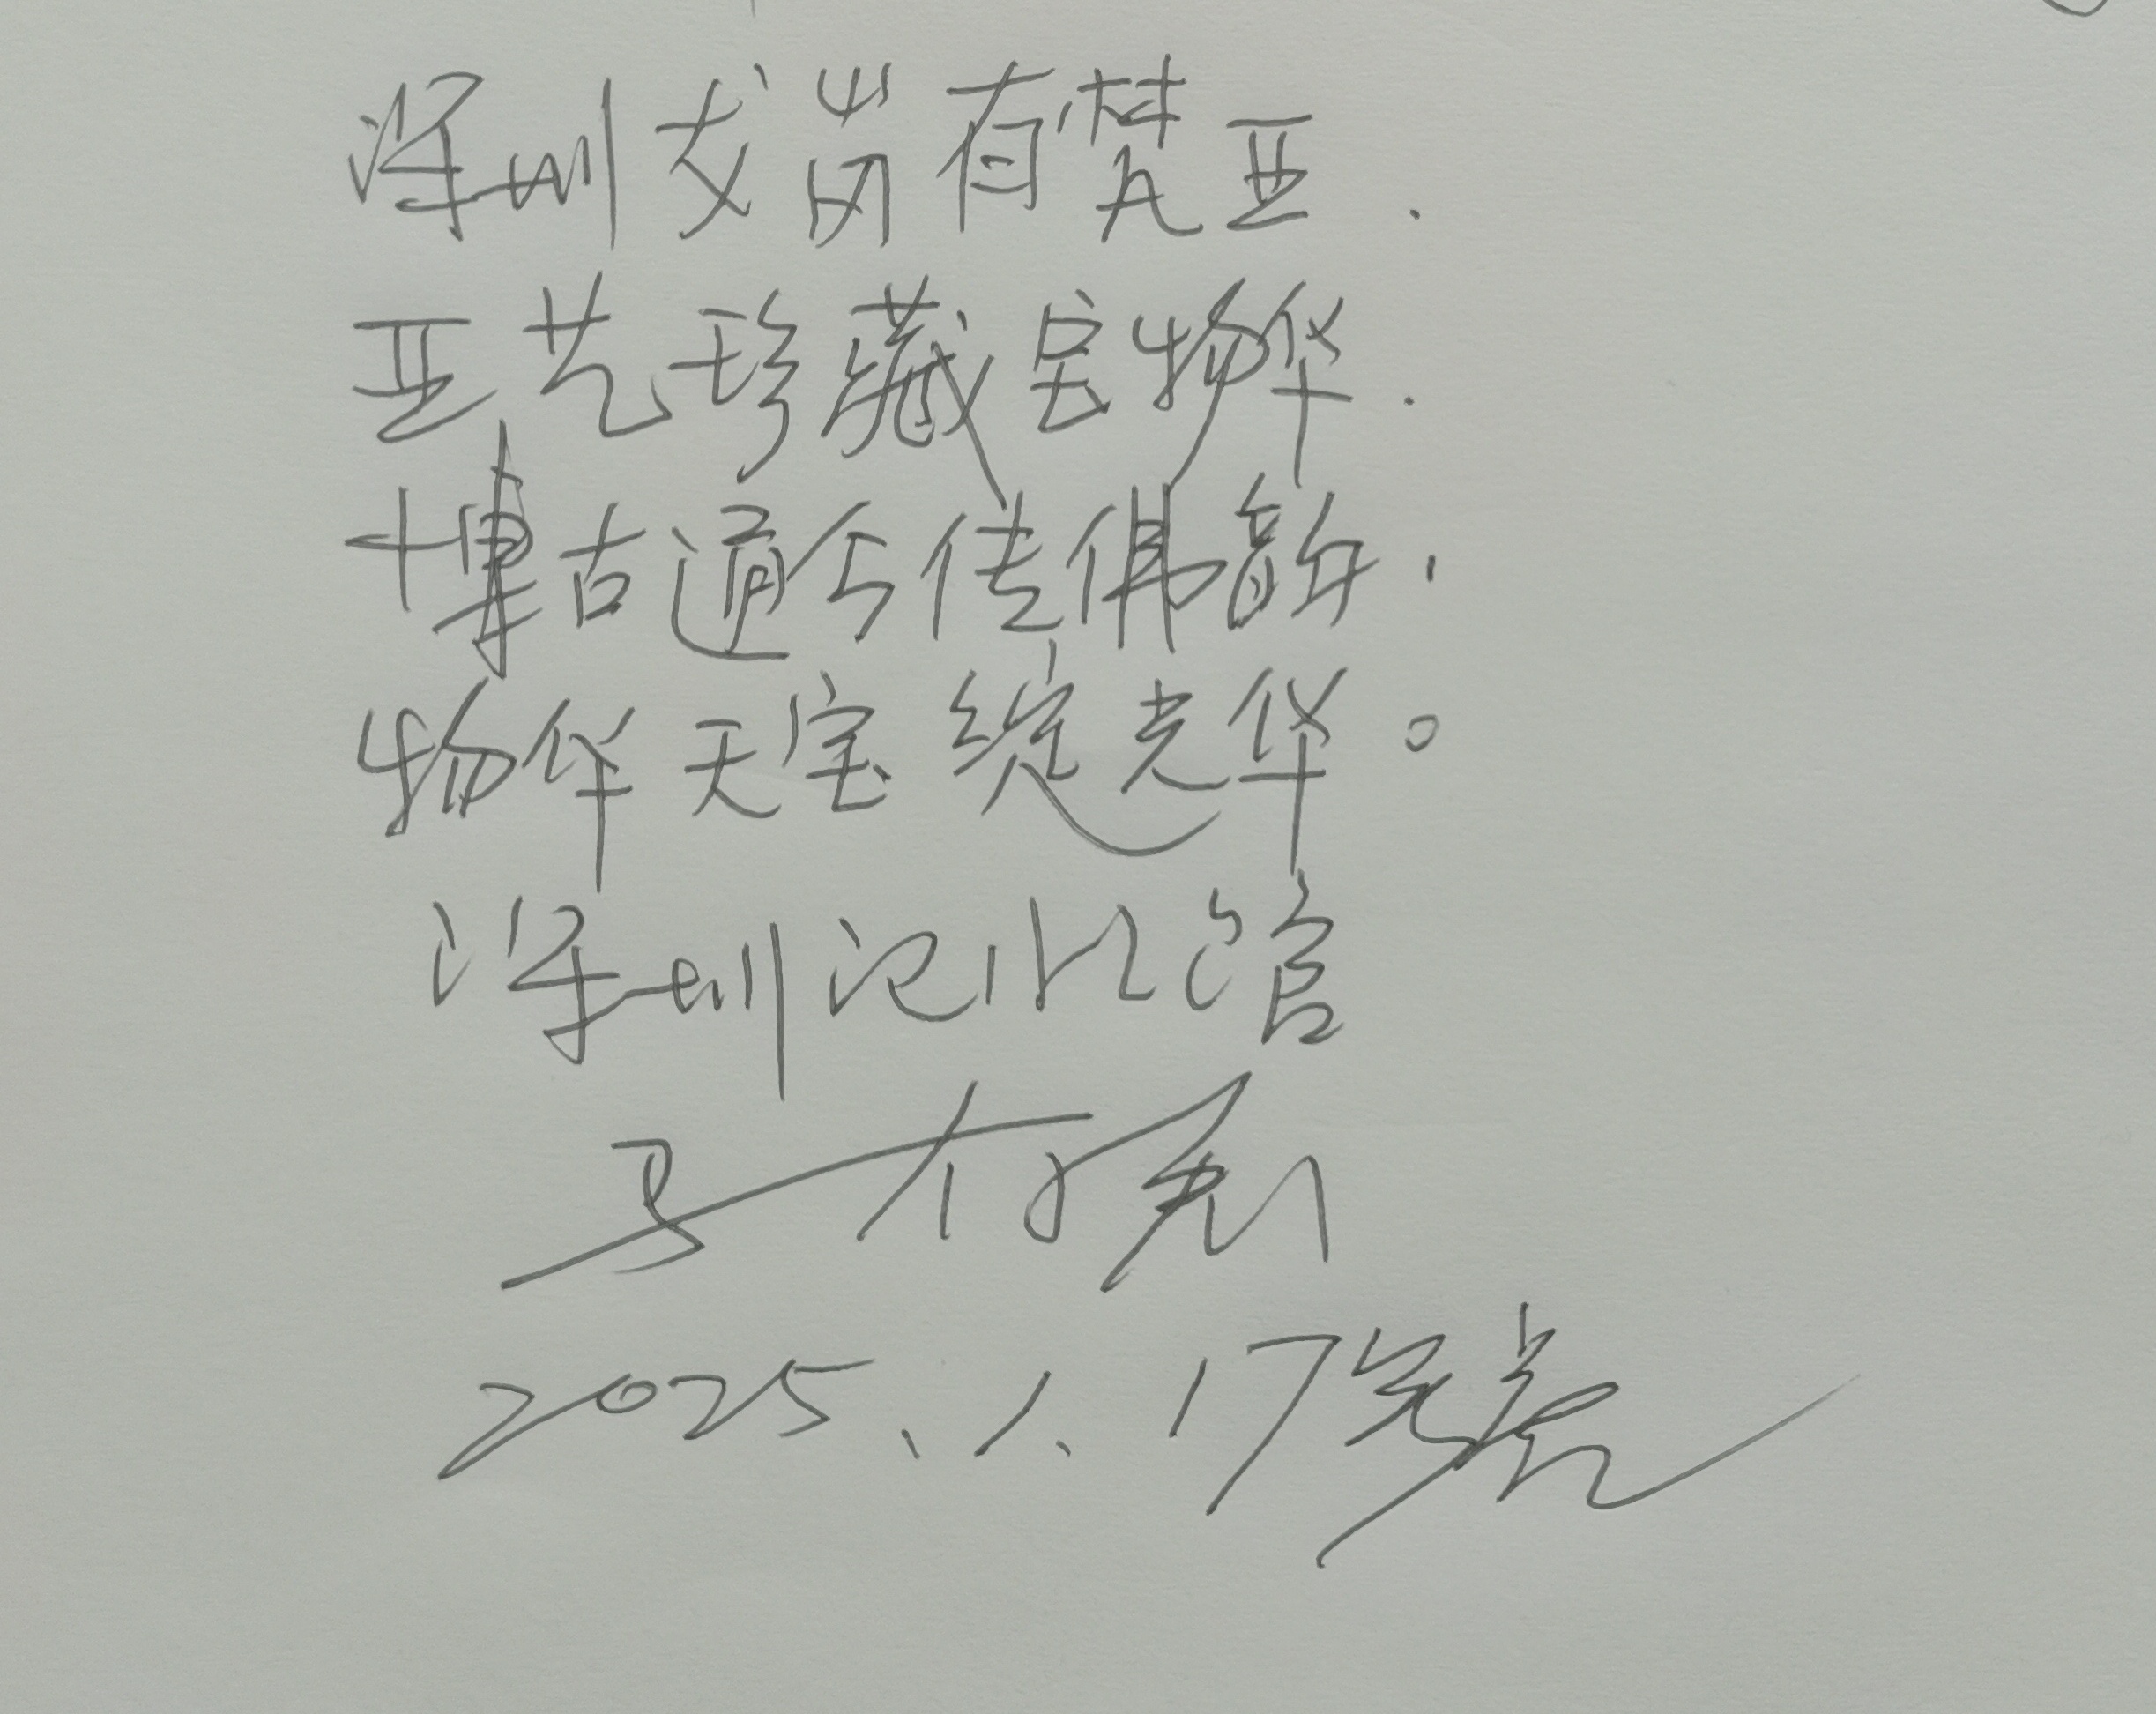 深圳龙岗有梵亚.
亚艺珍藏宝物华.
博古通今传佛韵.
物华天宝绽光华。
深圳
2025.1.17